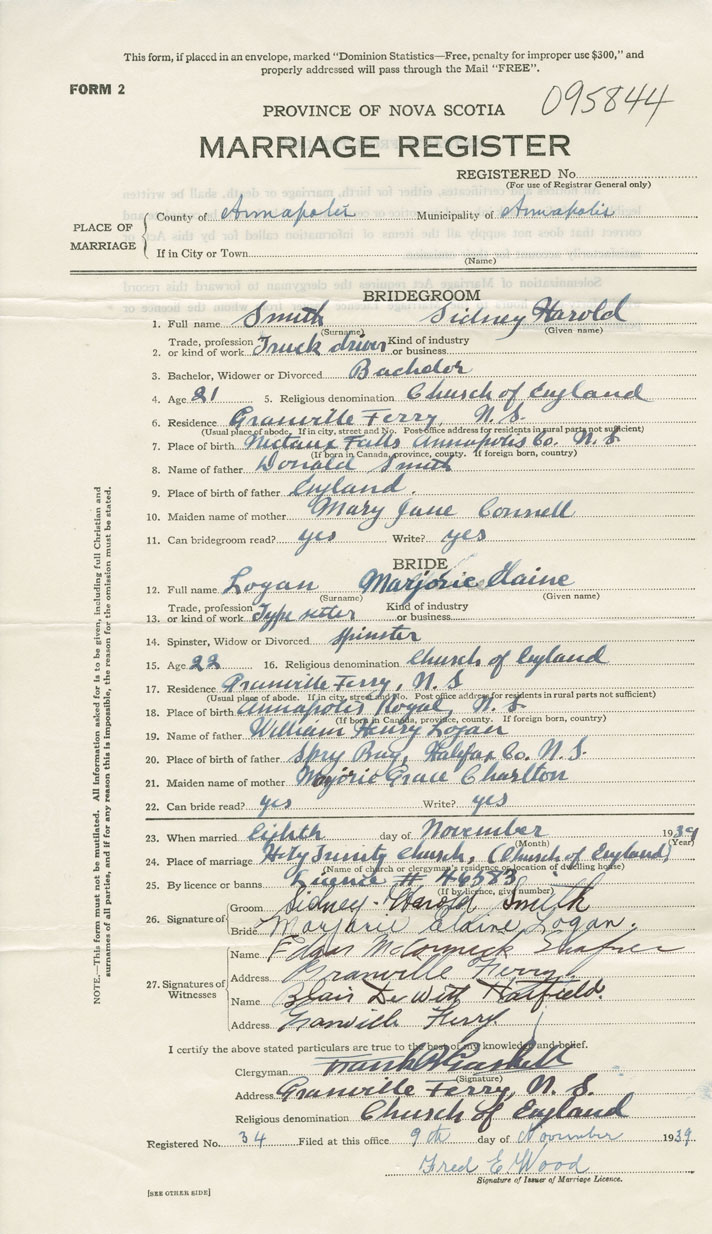 This form, if placed in an envelope, marked "Dominion Statistics—Free, penalty for improper use $300," and
properly addressed will pass through the Mail "FREE".
FORM 2
095844
PROVINCE OF NOVA SCOTIA
MARRIAGE REGISTER
REGISTERED No.
(For use of Registrar General only)
PLACE OF MARRIAGE
County of Annapolis Municipality of Annapolis
If in City or Town
(Name)
BRIDEGROOM
1. Full name Smith Sidney Harold
(Surname) (Given name)
2. Trade, profession or kind of work Truck driver Kind of industry or business
3. Bachelor, Widower or Divorced Bachelor
4. Age 21 5. Religious denomination Church of England
6. Residence Granville Ferry, N.S.
(Usual place of abode. If in city, street and No. Post office address for residents in rural parts not sufficient)
7. Place of birth Nictaux Falls Annapolis Co. N.S
(If born in Canada, province, county. If foreign born, country)
8. Name of father Donald Smith
9. Place of birth of father England.
10. Maiden name of mother Mary Jane Connell
11. Can bridegroom read? yes Write? yes
BRIDE
12. Full name Logan Marjorie Elaine
(Surname) (Given name)
13. Trade, profession or kind of work Type setter Kind of industry or business
14. Spinster, Widow or Divorced Spinster
15. Age 22 16. Religious denomination Church of England
17. Residence Granville Ferry, N.S
(Usual place of abode. If in city, street and No. Post office address for residents in rural parts not sufficient)
18. Place of birth Annapolis Royal, N.S
(If born in Canada, province, county. If foreign born, country)
19. Name of father William Henry Logan
20. Place of birth of father Spry Bay, Halifax Co. N.S.
21. Maiden name of mother Marjorie Grace Charlton
22. Can bride read? yes Write? yes
23. When married Eighth day of November 1939
(Month) (Year)
24. Place of marriage Holy Trinity Church, (Church of England)
(Name of church or clergyman's residence or location of dwelling house)
25. By licence or banns Licence # 46583
(If by licence, give number)
26. Signature of
Groom Sidney Harold Smith
Bride Marjorie Elaine Logan.
27. Signatures of Witnesses
Name Edgar McCormick Shafner
Address Granville Ferry.
Name Blair DeWitt Hatfield.
Address Granville Ferry
I certify the above stated particulars are true to the best of my knowledge and belief.
Clergyman Frank R Gaskell
(Signature)
Address Granville Ferry, N. S.
Religious denomination Church of England
Registered No. 34 Filed at this office 9th day of November 1939
Fred E Wood
Signature of Issuer of Marriage Licence.
[SEE OTHER SIDE]
NOTE.—This form must not be mutilated. All information asked for is to be given, including full Christian and
surnames of all parties, and if for any reason this is impossible, the reason for the omission must be stated.